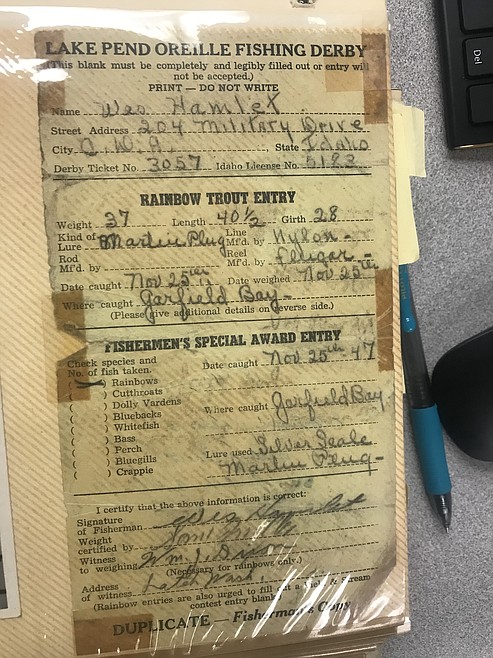 LAKE PEND OREILLE FISHING DERBY
(This blank must be completely and legibly filled out or entry will
not be accepted.)
PRINT — DO NOT WRITE
Name Wes Hamlet
Street Address 204 Military Drive
City State Idaho
Derby Ticket No. 3057 Idaho License No. 5183
RAINBOW TROUT ENTRY
Weight 37 Length 40 1/2 Girth 28
Kind of Lure Martin Plug Line Mf'd. by Nylon -
Rod Mf'd. by Reel Mf'd. by Flugar -
Date caught Nov 25th Date weighed Nov 25th
Where caught Garfield Bay -
(Please give additional details on reverse side.)
FISHERMEN'S SPECIAL AWARD ENTRY
Check species and
No. of fish taken. Date caught Nov 25th 47
( ) Rainbows
( ) Cutthroats
( ) Dolly Vardens
( ) Bluebacks Where caught Garfield Bay -
( ) Whitefish
( ) Bass
( ) Perch
( ) Bluegills Lure used Silver Scale
( ) Crappie Martin Plug -
I certify that the above information is correct:
Signature
of Fisherman Wes Hamlet
Weight
certified by
Witness
to weighing Wm. J.
(Necessary for rainbows only.)
Address
of witness Wash.
(Rainbow entries are also urged to fill out a Field & Stream
contest entry blank)
DUPLICATE — Fisherman's Copy
Del